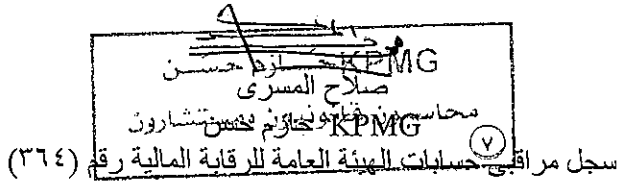 KPMG حازم حسن
صلاح المسرى
محاسبون قانونيون ومستشارون
KPMG حازم حسن
٧
سجل مراقبي حسابات الهيئة العامة للرقابة المالية رقم (٣٦٤)